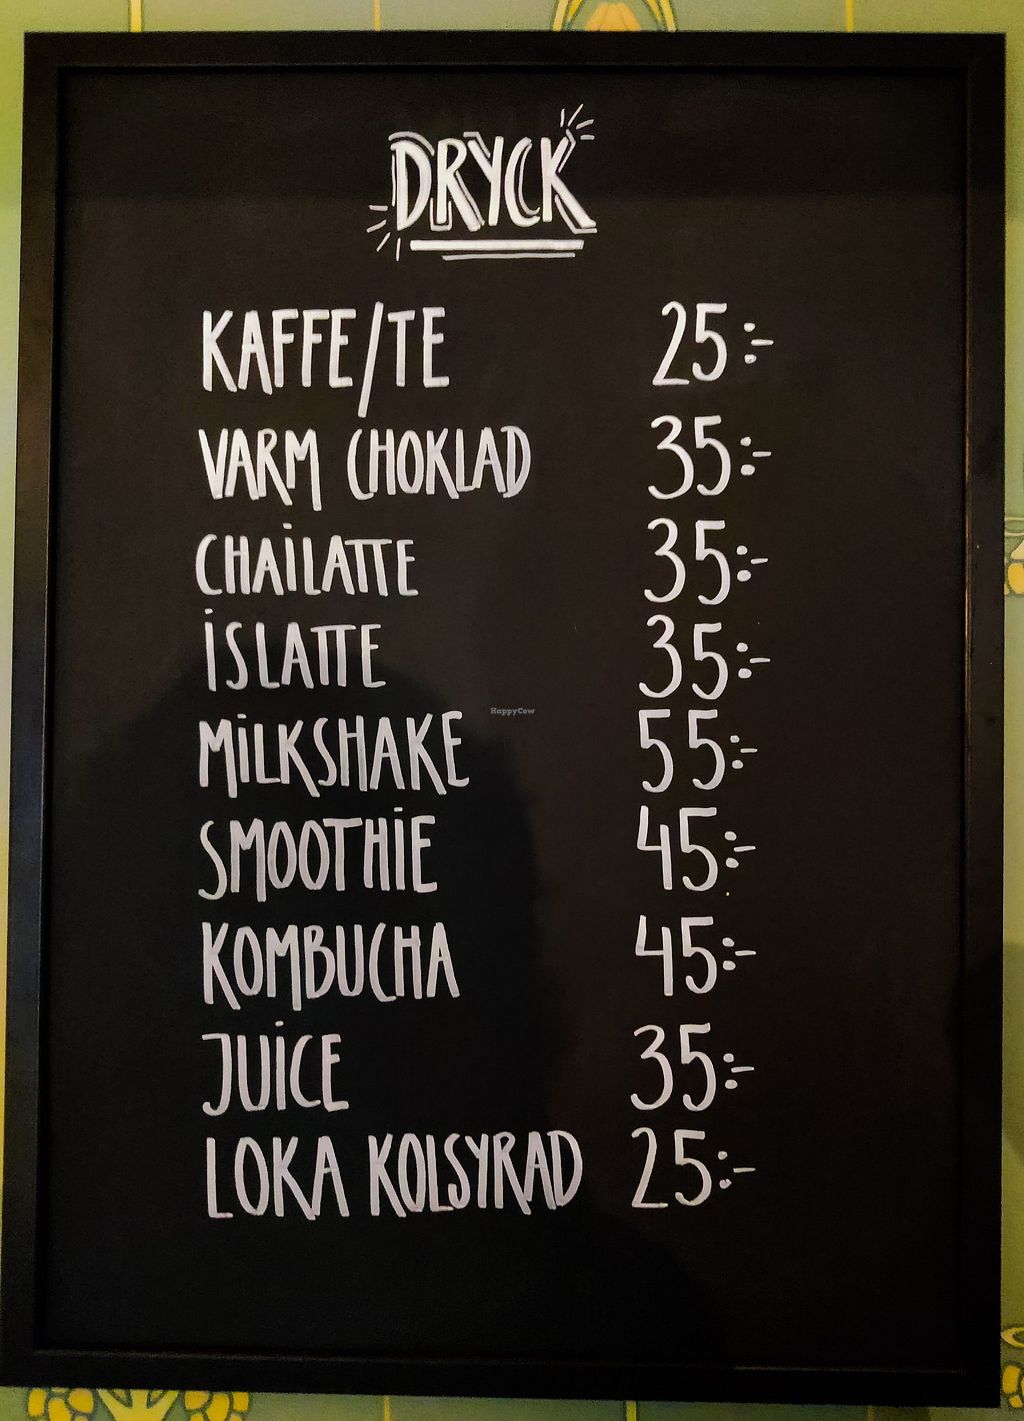 DRYCK
KAFFE/TE 25:-
VARM CHOKLAD 35:-
CHAILATTE 35:-
ISLATTE 35:-
MILKSHAKE 55:-
HappyCow
SMOOTHIE 45:-
KOMBUCHA 45:-
JUICE 35:-
LOKA KOLSYRAD 25:-